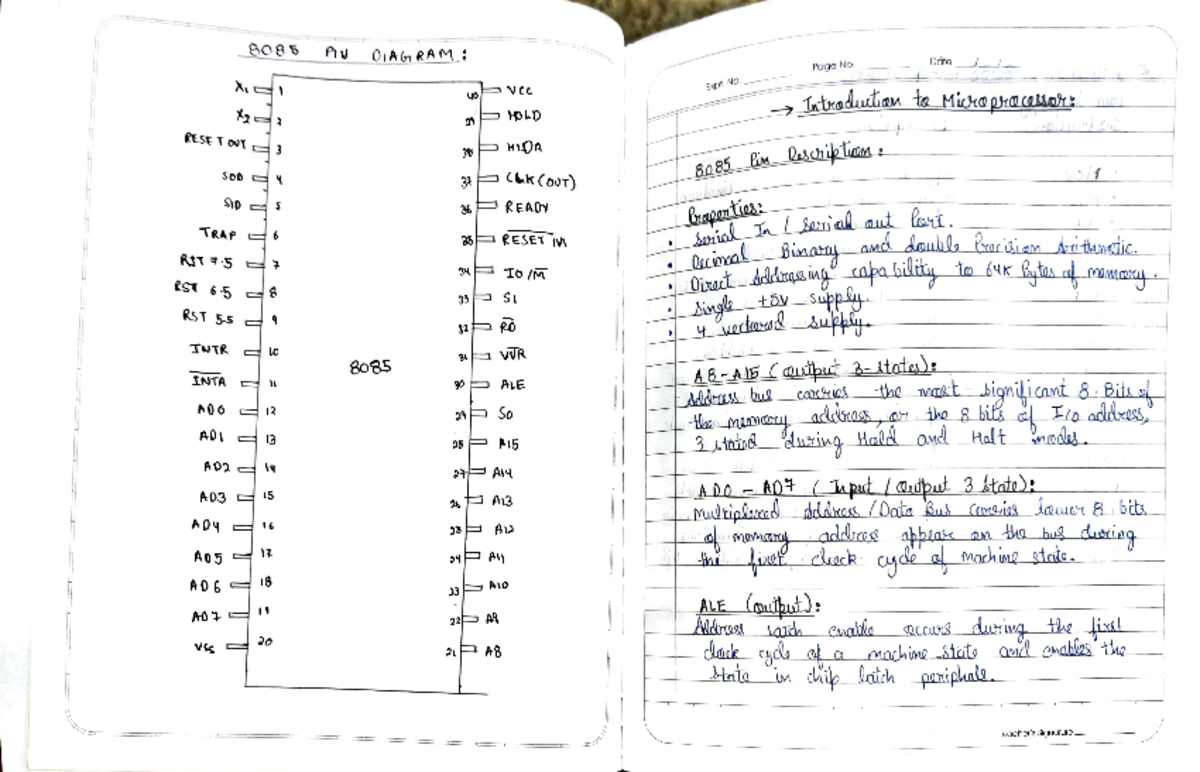 8085 PIN DIAGRAM:
X1 1
X2 2
RESET OUT 3
SOD 4
SID 5
TRAP 6
RST 7.5 7
RST 6.5 8
RST 5.5 9
INTR 10
I̅N̅T̅A̅ 11
AD0 12
AD1 13
AD2 14
AD3 15
AD4 16
AD5 17
AD6 18
AD7 19
VSS 20
8085
40 VCC
39 HOLD
38 HLDA
37 CLK (OUT)
36 READY
35 R̅E̅S̅E̅T̅ ̅I̅N̅
34 IO/M̅
33 S1
32 R̅D̅
31 W̅R̅
30 ALE
29 S0
28 A15
27 A14
26 A13
25 A12
24 A11
23 A10
22 A9
21 A8
Expt. No.
Page No
Date
→ Introduction to Microprocessor:
8085 Pin Description:
Properties:
• Serial In / Serial out Port.
• Decimal Binary and double Precision Arithmetic.
• Direct Addressing capability to 64K Bytes of memory.
• Single +5V supply.
• 4 vectored supply.
A8-A15 (output 3-states):
Address bus carries the most significant 8-Bits of
the memory address, or the 8 bits of I/O address,
3 stated during Hold and Halt modes.
AD0 - AD7 (Input / output 3 State):
Multiplexed Address / Data Bus carries lower 8 bits
of memory address appear on the bus during
the first clock cycle of machine state.
ALE (output):
Address latch enable occurs during the first
clock cycle of a machine state and enables the
state in chip latch periphals.